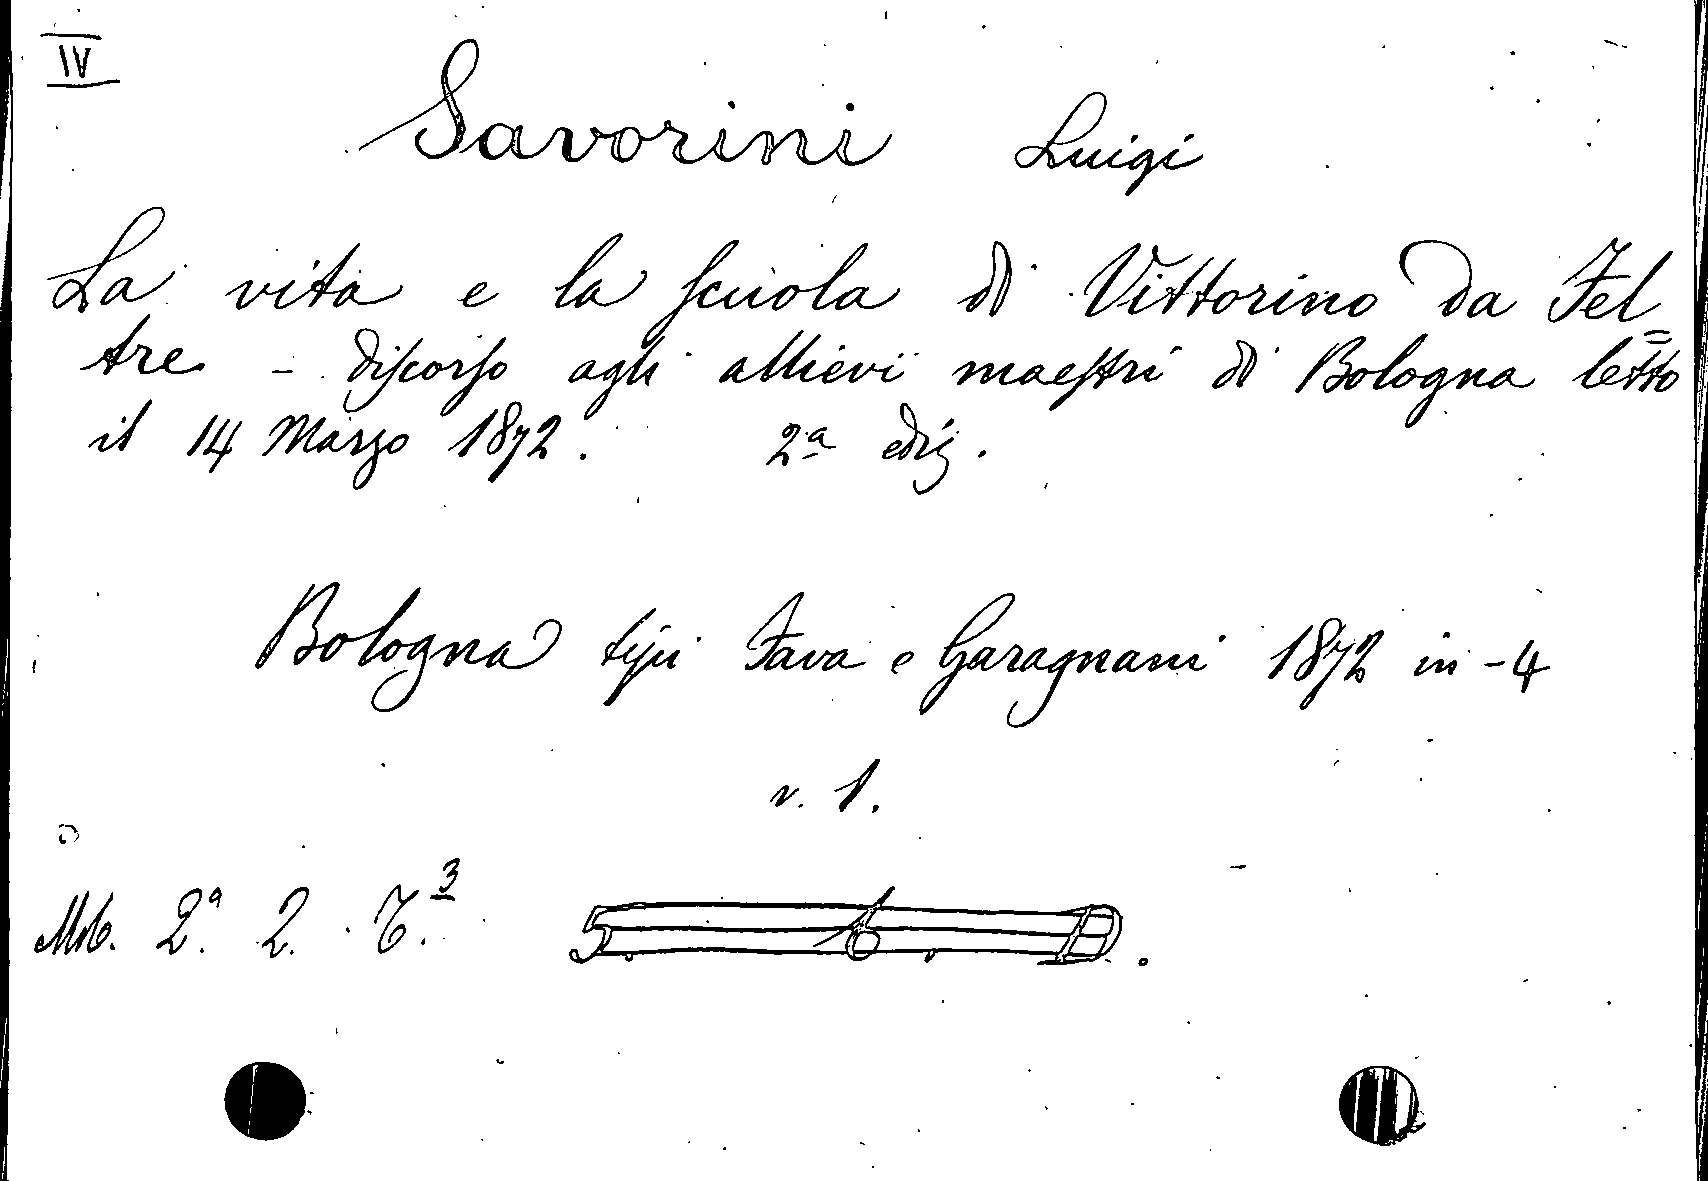 IV
Savorini Luigi
La vita e la scuola di Vittorino da Fel=
tre - discorso agli allievi maestri di Bologna letto
il 14 Marzo 1872. 2ª ediz.
Bologna tipi Fava e Garagnani 1872 in-4
v. 1.
2.ª 2.
5. 6. D.